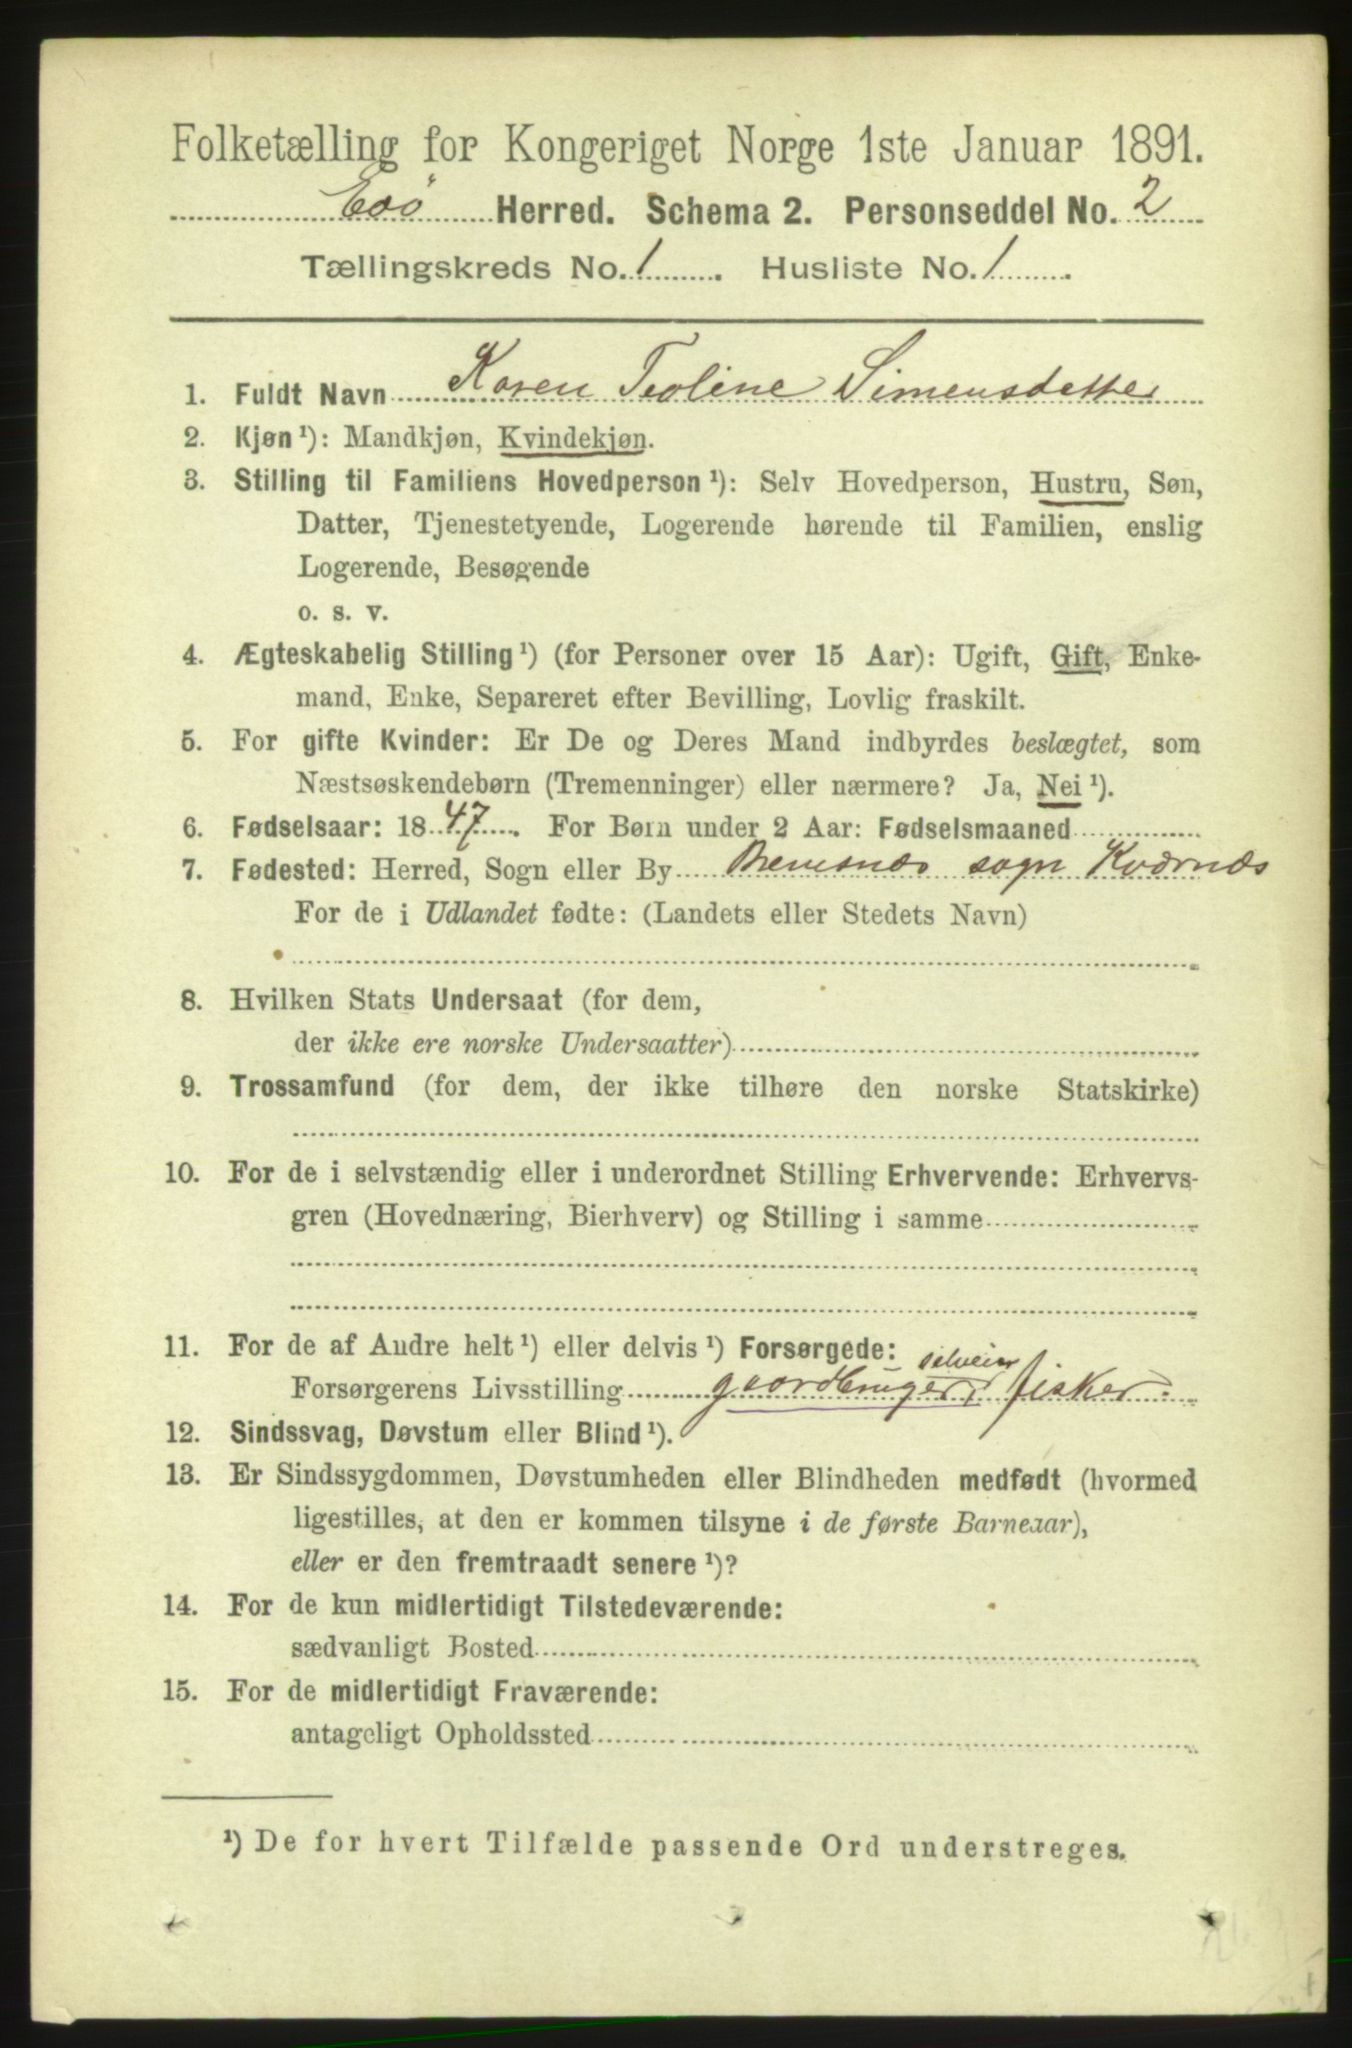 Folketælling for Kongeriget Norge 1ste Januar 1891.
Edö Herred. Schema 2. Personseddel No. 2
Tællingskreds No. 1. Husliste No. 1.
1. Fuldt Navn Karen Teoline Simensdatter
2. Kjøn ¹): Mandkjøn, Kvindekjøn.
3. Stilling til Familiens Hovedperson ¹): Selv Hovedperson, Hustru, Søn,
Datter, Tjenestetyende, Logerende hørende til Familien, enslig
Logerende, Besøgende
o. s. v.
4. Ægteskabelig Stilling ¹) (for Personer over 15 Aar): Ugift, Gift, Enke-
mand, Enke, Separeret efter Bevilling, Lovlig fraskilt.
5. For gifte Kvinder: Er De og Deres Mand indbyrdes beslægtet, som
Næstsøskendebørn (Tremenninger) eller nærmere? Ja, Nei ¹).
6. Fødselsaar: 1847. For Børn under 2 Aar: Fødselsmaaned
7. Fødested: Herred, Sogn eller By Bremsnæs sogn Kværnæs
For de i Udlandet fødte: (Landets eller Stedets Navn)
8. Hvilken Stats Undersaat (for dem,
der ikke ere norske Undersaatter)
9. Trossamfund (for dem, der ikke tilhøre den norske Statskirke)
10. For de i selvstændig eller i underordnet Stilling Erhvervende: Erhvervs-
gren (Hovednæring, Bierhverv) og Stilling i samme
11. For de af Andre helt ¹) eller delvis ¹) Forsørgede:
selveier
Forsørgerens Livsstilling gaardbruger, fisker.
12. Sindssvag, Døvstum eller Blind ¹).
13. Er Sindssygdommen, Døvstumheden eller Blindheden medfødt (hvormed
ligestilles, at den er kommen tilsyne i de første Barneaar),
eller er den fremtraadt senere ¹)?
14. For de kun midlertidigt Tilstedeværende:
sædvanligt Bosted
15. For de midlertidigt Fraværende:
antageligt Opholdssted
¹) De for hvert Tilfælde passende Ord understreges.